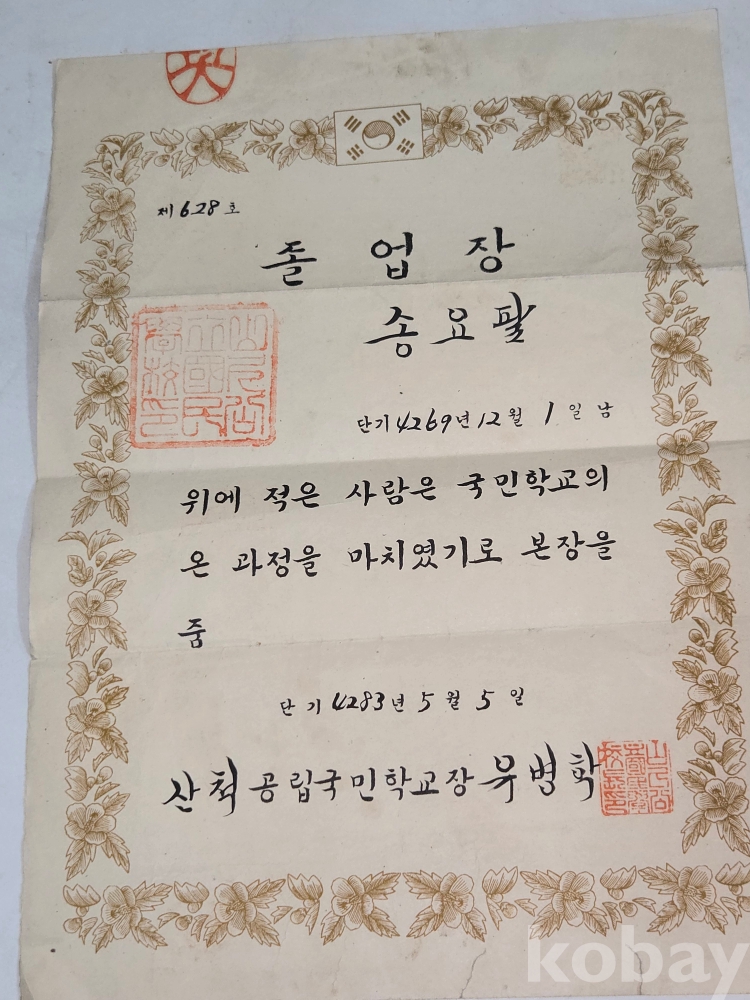 제628호
졸업장
송요팔
단기4269년12월1일 남
위에 적은 사람은 국민학교의
온 과정을 마치였기로 본장을
줌
단기4283년5월5일
산척공립국민학교장 유병학
kobay